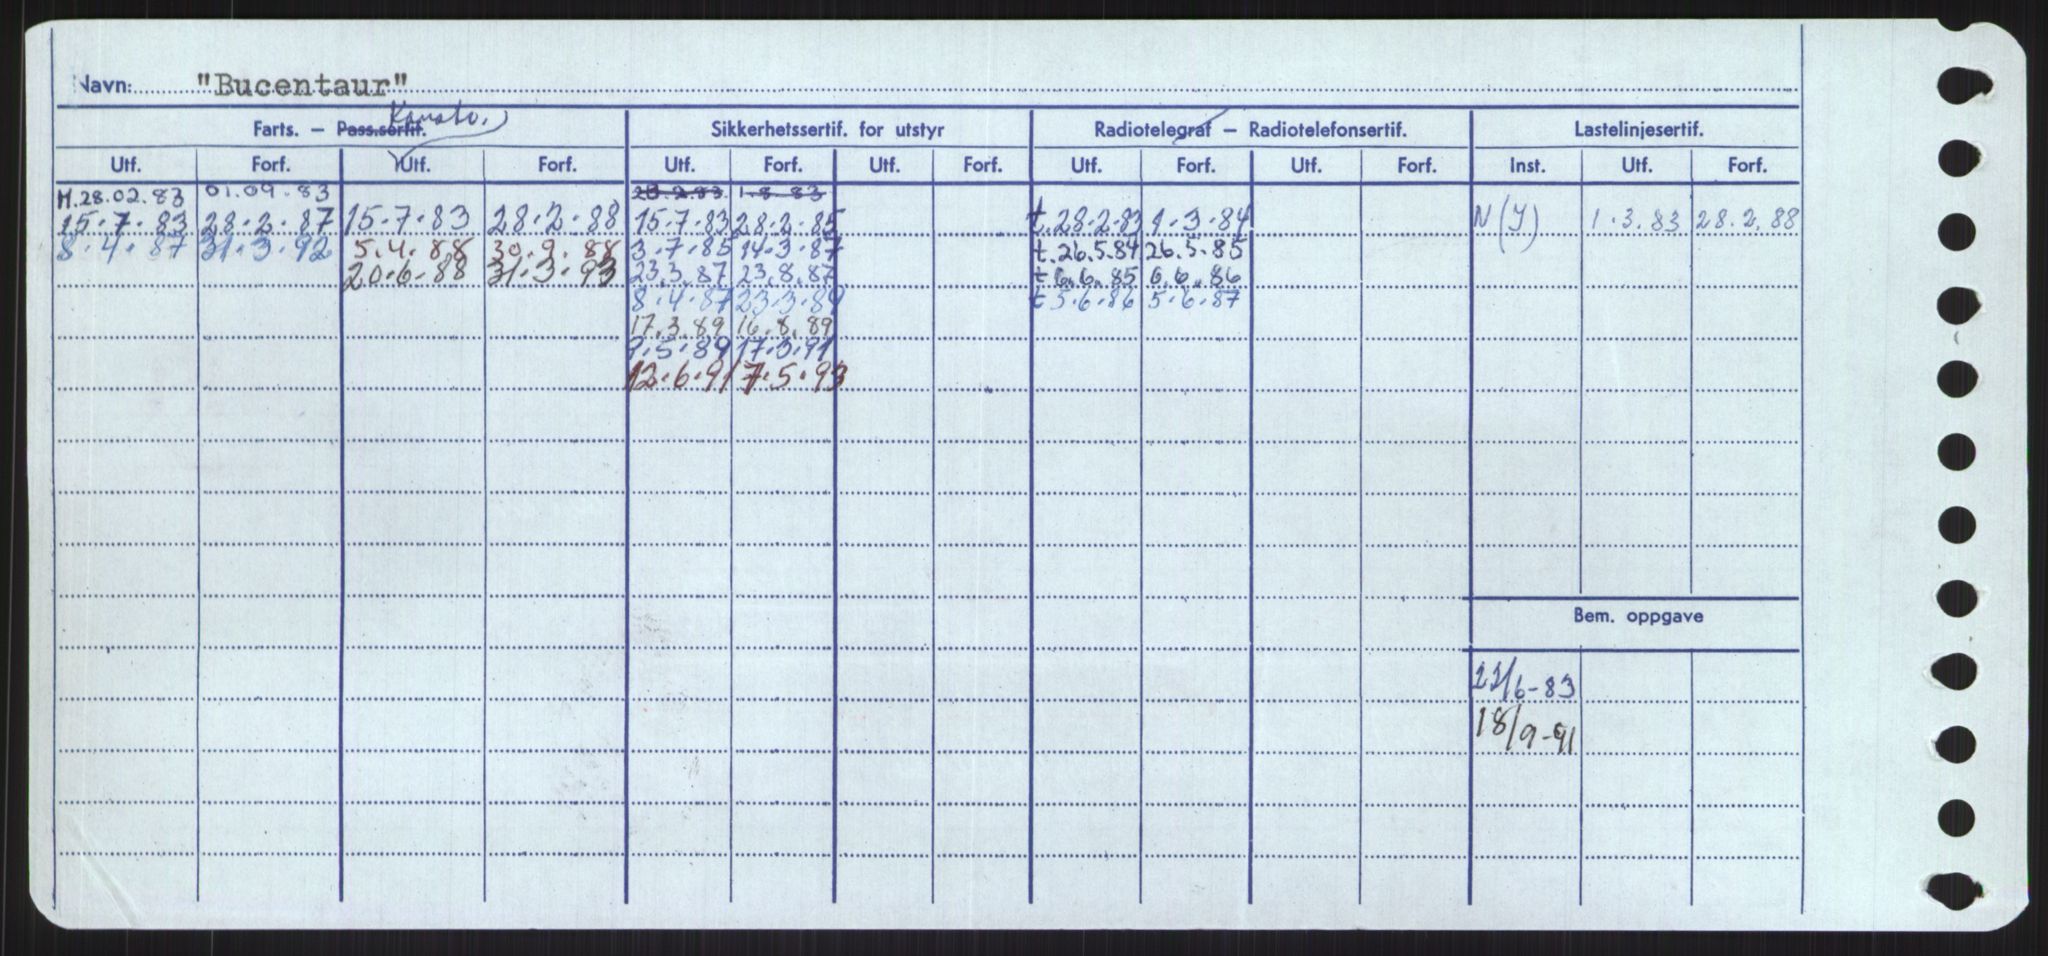 Navn: "Bucentaur"
Konstr.
Farts. – Pass.sertif. Sikkerhetssertif. for utstyr Radiotelegraf – Radiotelefonsertif. Lastelinjesertif.
Utf. Forf. Utf. Forf. Utf. Forf. Utf. Forf. Utf. Forf. Utf. Forf. Inst. Utf. Forf.
M.28.02.83 01.09.83 28.2.83 1.8.83
15.7.83 28.2.87 15.7.83 28.2.88 15.7.83 28.2.85 t.28.2.83 1.3.84 N(Y) 1.3.83 28.2.88
8.4.87 31.3.92 5.4.88 30.9.88 3.7.85 14.3.87 t.26.5.84 26.5.85
20.6.88 31.3.93 23.3.87 23.8.87 t 6.6.85 6.6.86
8.4.87 23.3.89 t 5.6.86 5.6.87
17.3.89 16.8.89
9.5.89 17.3.91
12.6.91 7.5.93
Bem. oppgave
23/6-83
18/9-91